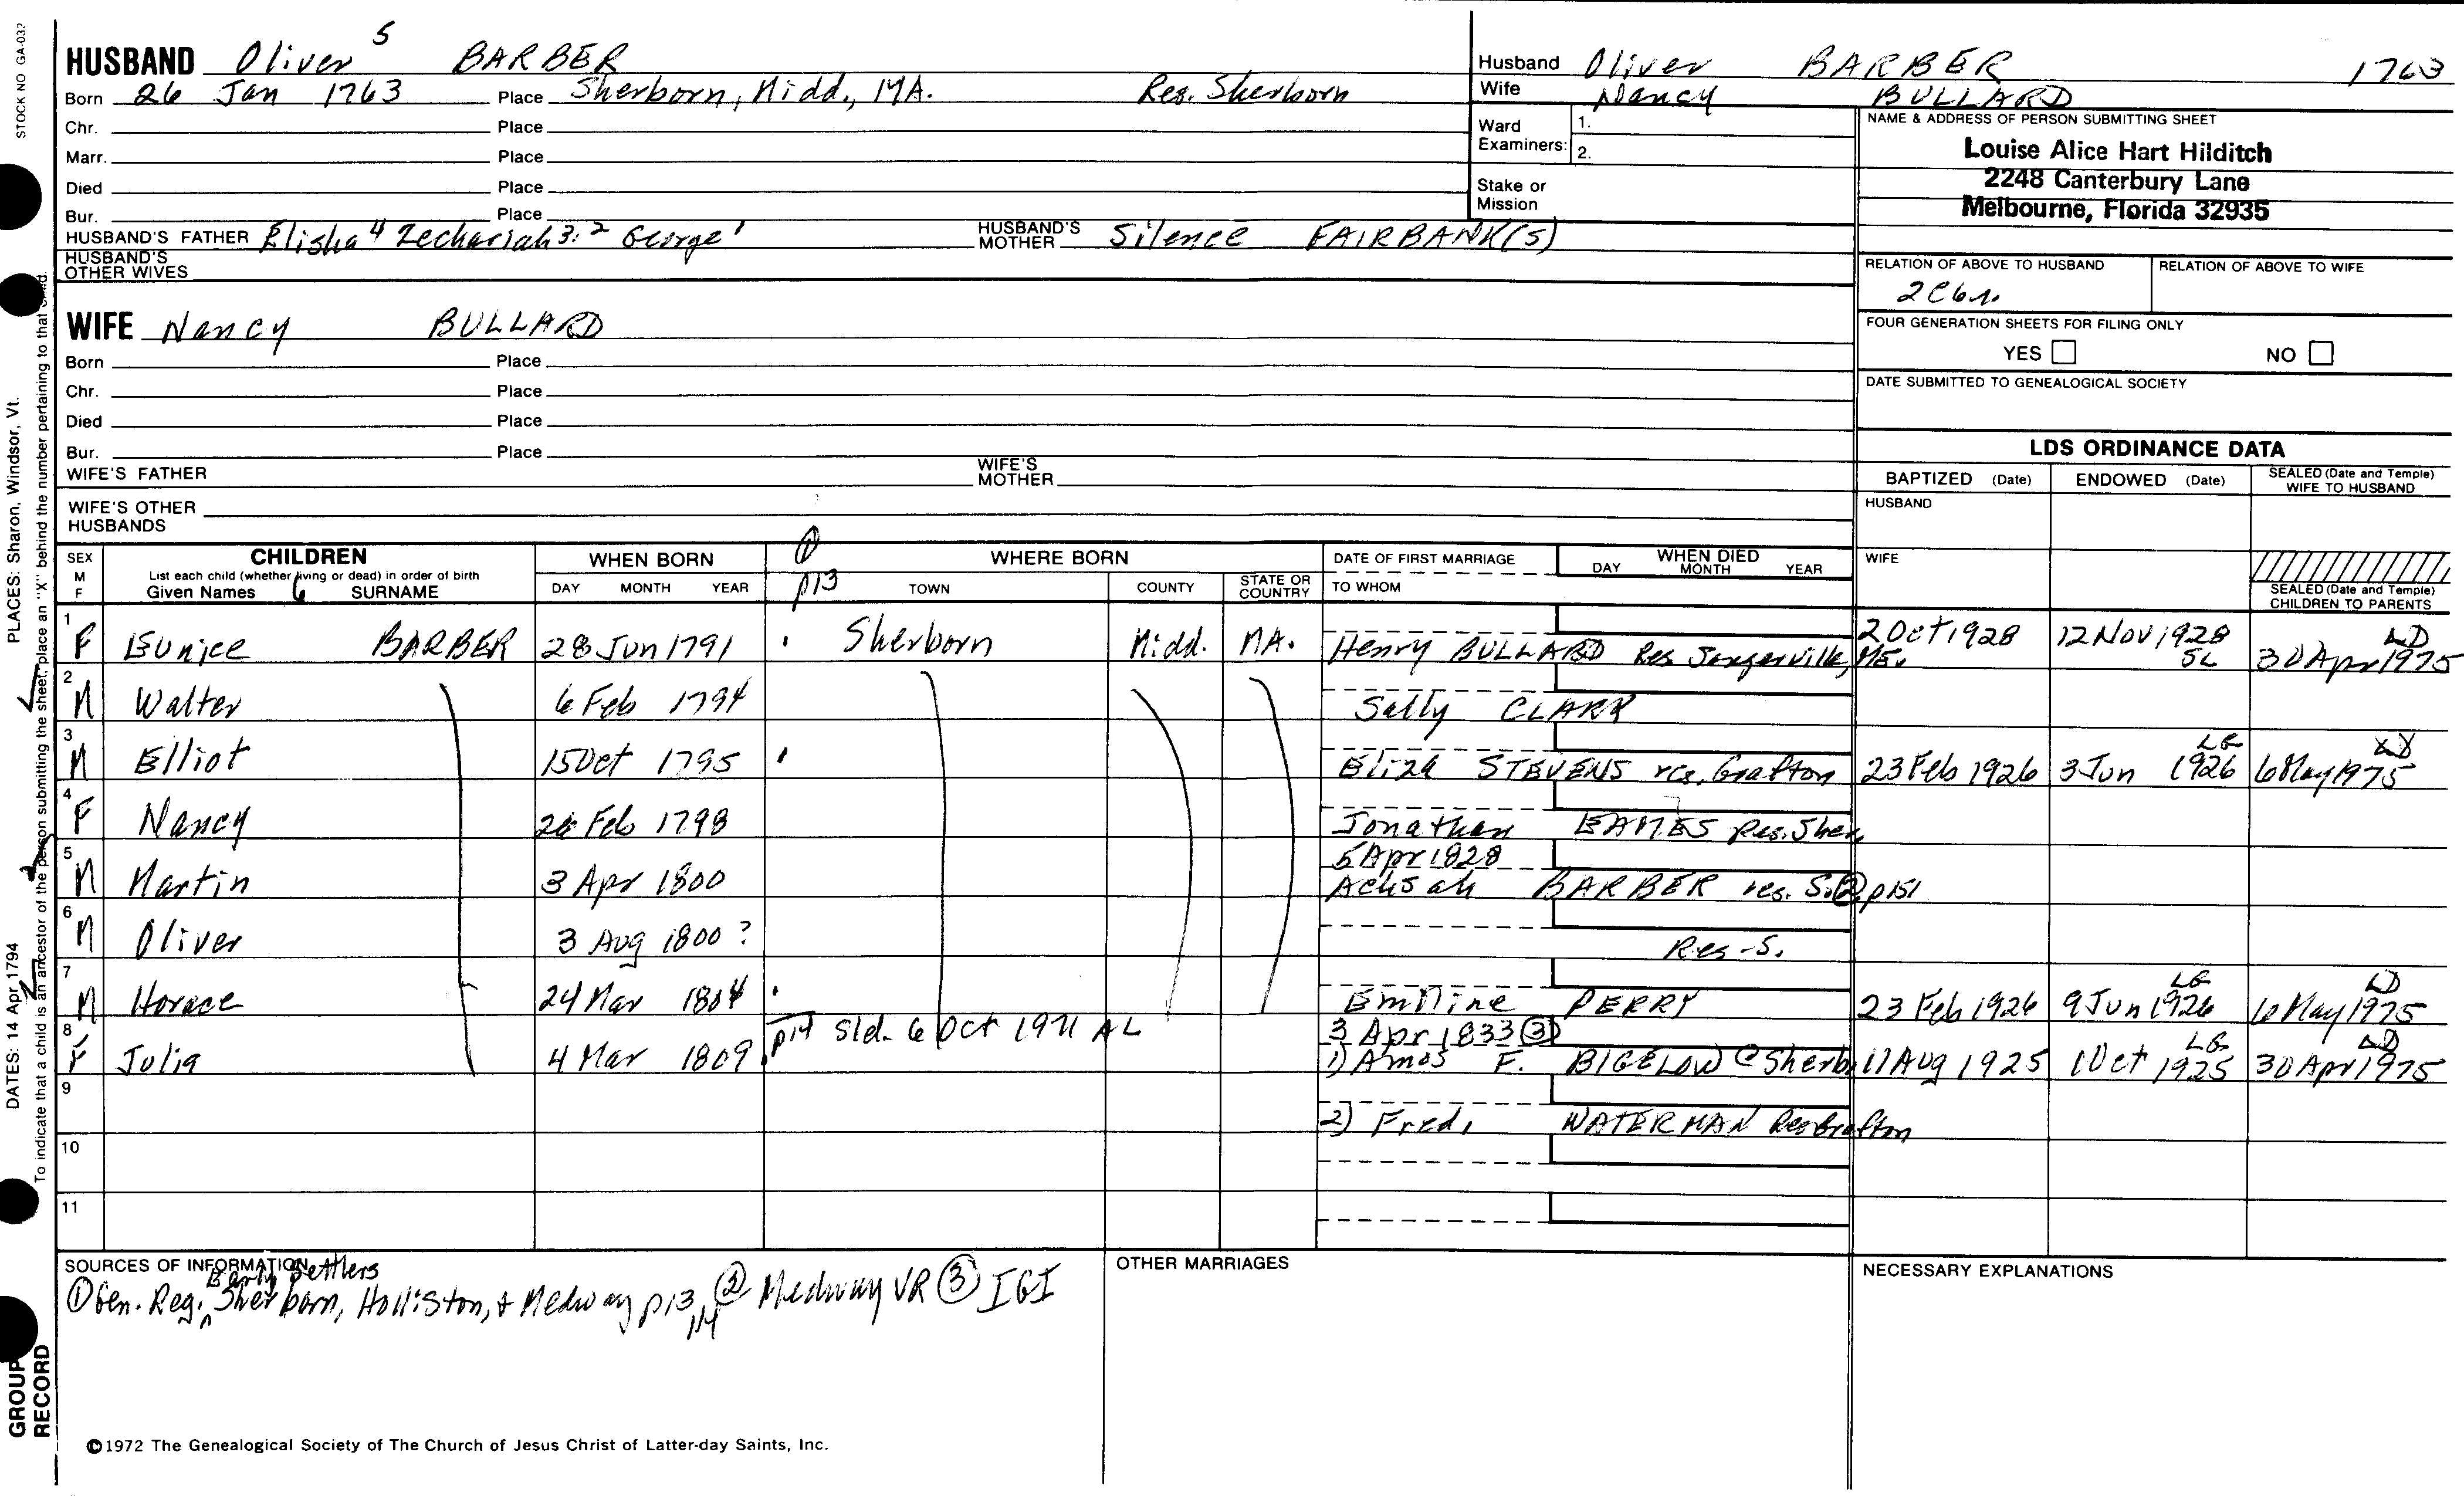 STOCK NO GA-032
HUSBAND Oliver 5 BARBER
Born 26 Jan 1763 Place Sherborn, Midd., MA. Res. Sherborn
Chr. Place
Marr. Place
Died Place
Bur. Place
HUSBAND'S FATHER Elisha 4 Zechariah 3, 2 George 1 HUSBAND'S MOTHER Silence FAIRBANK(S)
HUSBAND'S OTHER WIVES
WIFE Nancy BULLARD
Born Place
Chr. Place
Died Place
Bur. Place
WIFE'S FATHER WIFE'S MOTHER
WIFE'S OTHER HUSBANDS
Husband Oliver BARBER 1763
Wife Nancy BULLARD
Ward Examiners: 1. 2.
Stake or Mission
NAME & ADDRESS OF PERSON SUBMITTING SHEET
Louise Alice Hart Hilditch
2248 Canterbury Lane
Melbourne, Florida 32935
RELATION OF ABOVE TO HUSBAND RELATION OF ABOVE TO WIFE
FOUR GENERATION SHEETS FOR FILING ONLY
YES NO
DATE SUBMITTED TO GENEALOGICAL SOCIETY
LDS ORDINANCE DATA
BAPTIZED (Date) ENDOWED (Date) SEALED (Date and Temple) WIFE TO HUSBAND
HUSBAND
WIFE
SEALED (Date and Temple) CHILDREN TO PARENTS
SEX M F
CHILDREN
List each child (whether living or dead) in order of birth
Given Names 6 SURNAME
WHEN BORN
DAY MONTH YEAR
① p13
WHERE BORN
TOWN COUNTY STATE OR COUNTRY
DATE OF FIRST MARRIAGE
TO WHOM
WHEN DIED
DAY MONTH YEAR
1 F Eunice BARBER 28 Jun 1791 Sherborn Midd. MA. Henry BULLARD Res Sangerville, ME. 2 Oct 1928 12 Nov 1928 SL 30 Apr 1975 LD
2 M Walter 6 Feb 1794 Sally CLARK
3 M Elliot 15 Oct 1795 Eliza STEVENS res. Grafton 23 Feb 1926 3 Jun 1926 LG 6 May 1975 LD
4 F Nancy Feb 1798 Jonathan EAMES Res. Sher.
5 M Martin 3 Apr 1800 5 Apr 1828
Achsah BARBER res. S. ② p151
6 M Oliver 3 Aug 1800 ? Res-S.
7 M Horace 24 Mar 1804 PERRY 23 Feb 1926 9 Jun 1926 LG 6 May 1975 LD
p14 sld. 6 Oct 1971 AL 3 Apr 1833 ③
8 F Julia 4 Mar 1809 1) Amos F. BIGELOW @ Sherb. 11 Aug 1925 1 Oct 1925 LG 30 Apr 1975 LD
9 2) Fred. WATERMAN Res Grafton
10
11
SOURCES OF INFORMATION
① Gen. Reg. Early Settlers Sherborn, Holliston, & Medway p13, 14 ② Medway VR ③ IGI
OTHER MARRIAGES
NECESSARY EXPLANATIONS
©1972 The Genealogical Society of The Church of Jesus Christ of Latter-day Saints, Inc.
GROUP RECORD
DATES: 14 Apr 1794 PLACES: Sharon, Windsor, Vt.
To indicate that a child is an ancestor of the person submitting the sheet, place an "X" behind the number pertaining to that child.